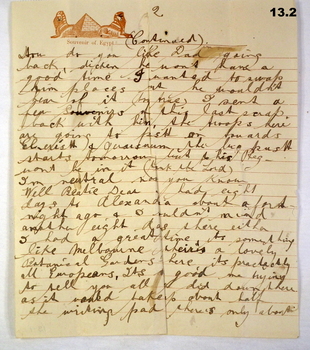 13.2
2
Souvenir of Egypt
(Continued)
How do you like Dad going
back dicken he won't have a
good time I wanted to swap
him places but he wouldn't
hear of it I sent a
few Souvenirs of this last scrap.
back with him the troops here
are going to push on towards
the big push
starts tomorrow but his Reg
wont be in it (thank the Lord)
I'm neutral now you know
Well Bertie Dear I had eight
days to Alexandria about a fort
night ago & wouldn't mind
another eight days there with
I had a great time its something
like Melbourne theirs a lovely
Botanical Gardens here its practically
all Europeans, Its no good me trying
to tell you all I did down there
as it would take up about half
the writing pad there's only about